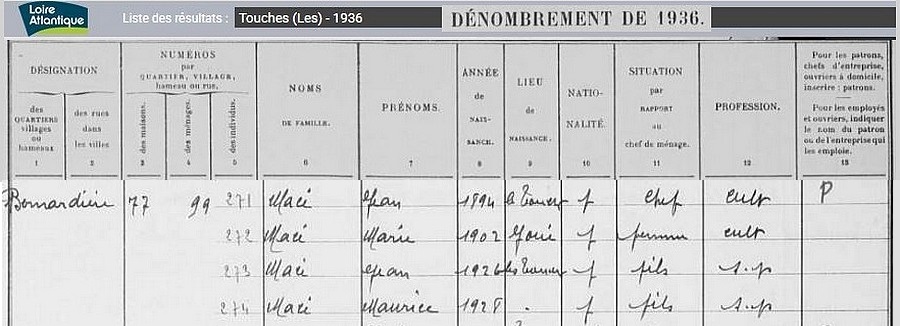 Loire
Atlantique
Liste des résultats : Touches (Les) - 1936
DÉNOMBREMENT DE 1936.
DÉSIGNATION
des QUARTIERS villages ou hameaux
des rues dans les villes
NUMÉROS
par QUARTIER, VILLAGE, hameau ou rue.
des maisons.
des ménages.
des individus.
NOMS DE FAMILLE.
PRÉNOMS.
ANNÉE de NAISSANCE.
LIEU de NAISSANCE.
NATIONALITÉ.
SITUATION par RAPPORT au chef de ménage.
PROFESSION.
Pour les patrons, chefs d'entreprise, ouvriers à domicile, inscrire : patrons.
Pour les employés et ouvriers, indiquer le nom du patron ou de l'entreprise qui les emploie.
1 2 3 4 5 6 7 8 9 10 11 12 13
77 99 271 Macé Jean 1894 f chef cult P
272 Macé Marie 1902 f femme cult
273 Macé Jean 1926 f fils s.p
274 Macé Maurice 1928 f fils s.p